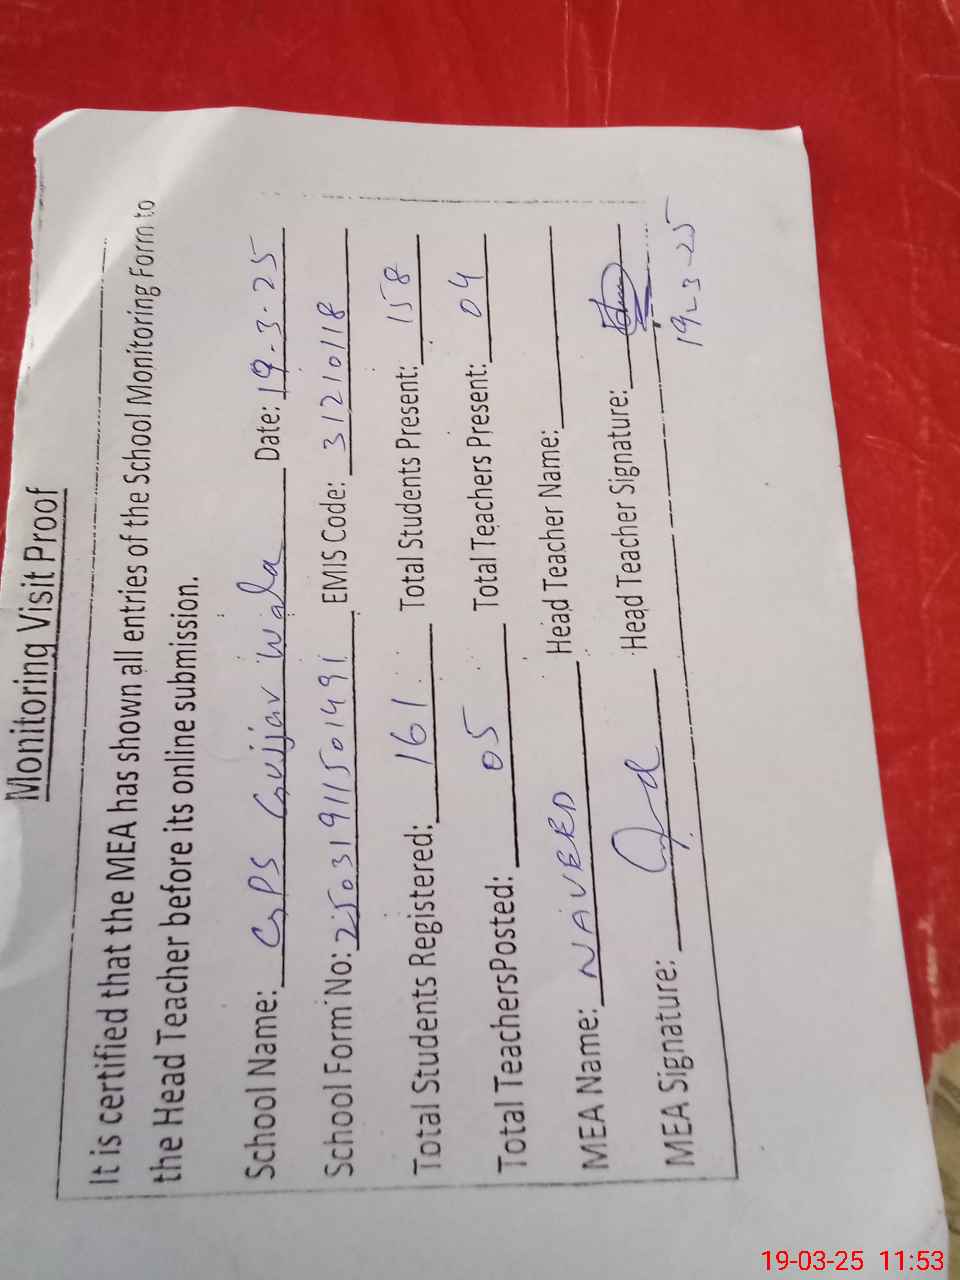 Monitoring Visit Proof
It is certified that the MEA has shown all entries of the School Monitoring Form to
the Head Teacher before its online submission.
School Name: GPS Gujjar Wala Date: 19-3-25
School Form No: 25031911501491 EMIS Code: 31210118
Total Students Registered: 161 Total Students Present: 158
Total TeachersPosted: 05 Total Teachers Present: 04
MEA Name: NAVEED Head Teacher Name:
MEA Signature: Head Teacher Signature:
19-3-25
19-03-25 11:53